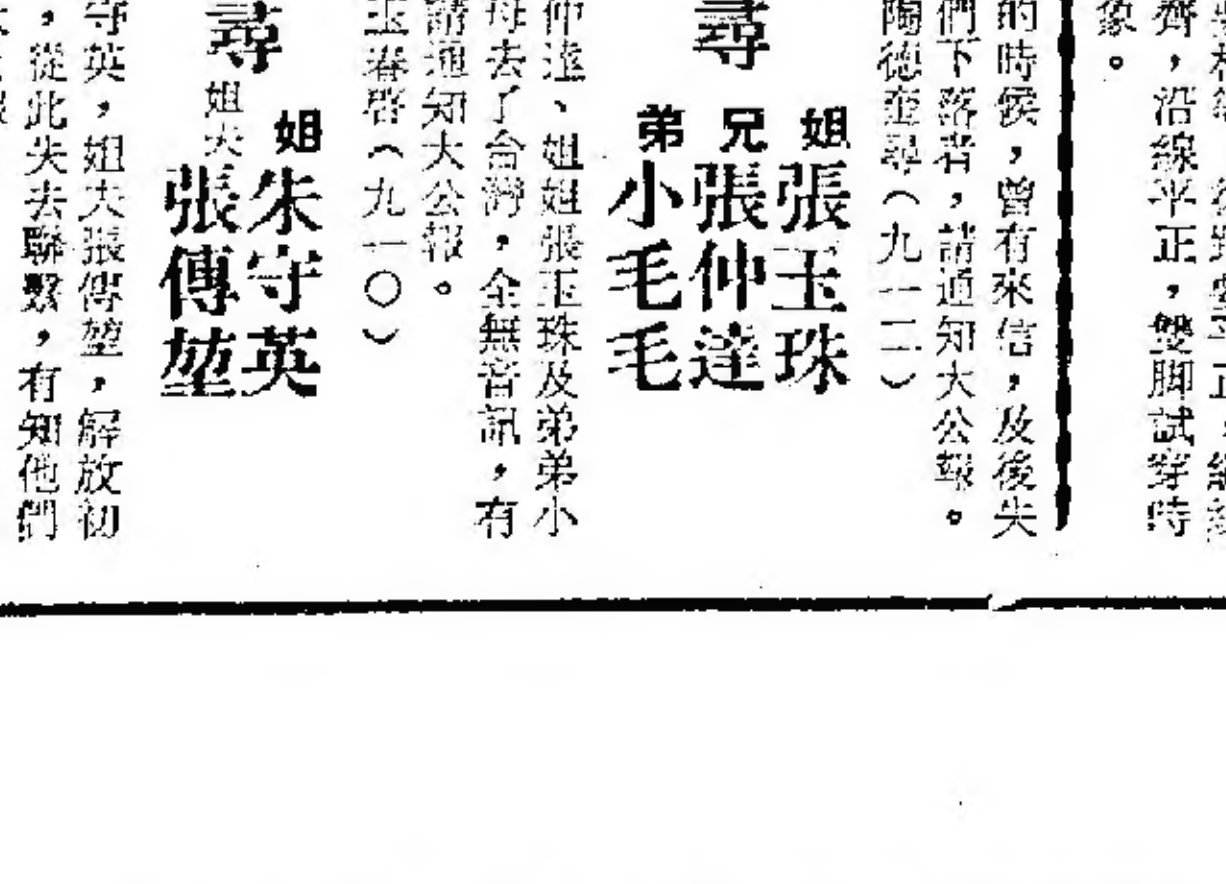 齊，沿線平正，雙脚試穿時
象。
的時侯，曾有來信，及後失
們下落者，請通知大公報。
陶德奎尋（九一二）
尋
姐張玉珠
兄張仲達
弟小毛毛
仲達、姐姐張玉珠及弟弟小
母去了台灣，全無音訊，有
請通知大公報。
玉春啓（九一〇）
尋
姐朱守英
姐夫張傳堃
守英，姐夫張傳堃，解放初
，從此失去聯繫，有知他們